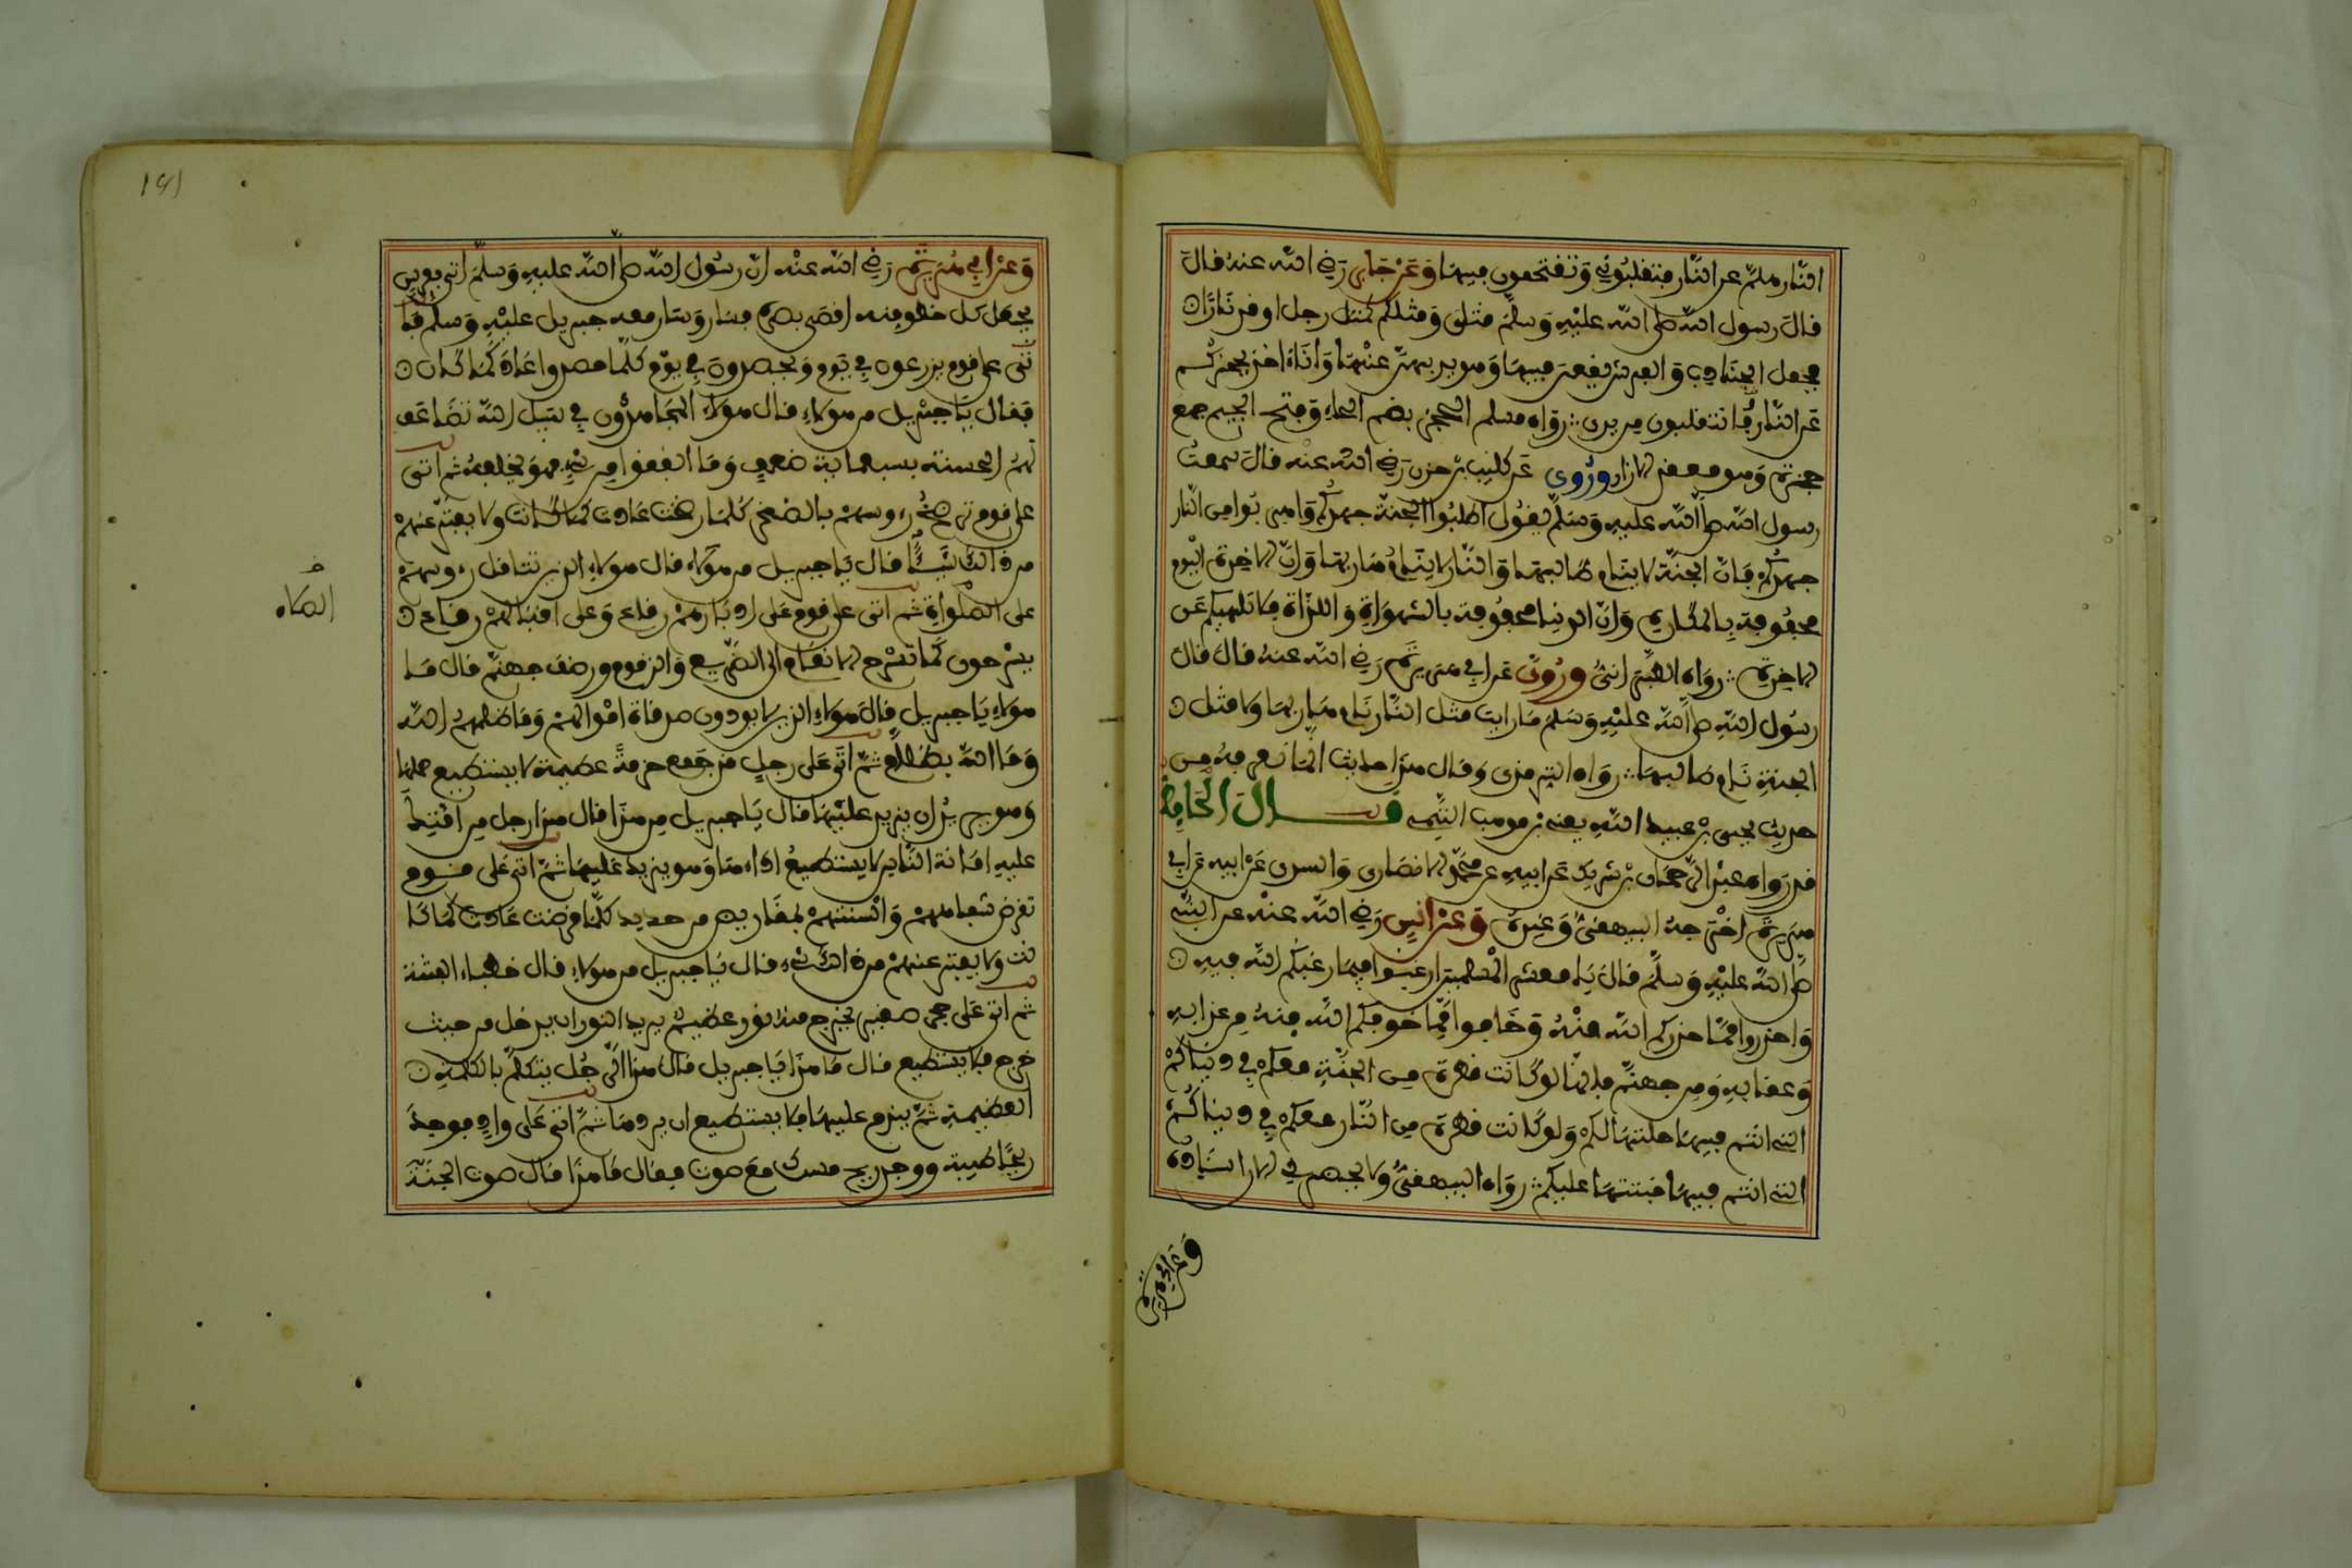 النار هلم عن النار فتغلبوني وتقتحمون فيها وعن جابر رضي الله عنه قال
قال رسول الله صلى الله عليه وسلم مثلي ومثلكم كمثل رجل اوقد نارا
فجعل الجنادب والفراش يقعن فيها وهو يذبهن عنها وانا ءاخذ بحجزكم
عن النار وانتم تفلتون من يدي رواه مسلم الحجز بضم الحاء وفتح الجيم جمع
حجزة وهو معقد الازار وروي عن كليب بن حزن رضي الله عنه قال سمعت
رسول الله صلى الله عليه وسلم يقول اطلبوا الجنة جهدكم واهربوا من النار
جهدكم فان الجنة لا ينام طالبها والنار لا ينام هاربها وان الاخرة اليوم
محفوفة بالمكاره وان الدنيا محفوفة بالشهوات واللذات فلا تلهينكم عن
الاخرة رواه الطبراني وروي عن ابي هريرة رضي الله عنه قال قال
رسول الله صلى الله عليه وسلم ما رايت مثل النار نام هاربها ولا مثل
الجنة نام طالبها رواه الترمذي وقال هذا حديث انما نعرفه من
حديث يحيى بن عبيد الله يعني بن موهب التيمي قال الحافظ
قد رواه عبد الرحمان بن شريك عن ابيه عن محمد الانصاري والسدي عن ابيه عن ابي
هريرة اخرجه البيهقي وغيره وعن انس رضي الله عنه عن النبي
صلى الله عليه وسلم قال يا معشر المسلمين ارغبوا فيما رغبكم الله فيه
واحذروا مما حذركم الله منه وخافوا مما خوفكم الله منه من عذابه
وعقابه ومن جهنم فانها لو كانت قطرة من الجنة معكم في دنياكم
التي انتم فيها حلتها لكم ولو كانت قطرة من النار معكم في دنياكم
التي انتم فيها خبثتها عليكم رواه البيهقي ولا يحضرني الان اسناده
وعن ابي هريرة
وعن ابي هريرة رضي الله عنه ان رسول الله صلى الله عليه وسلم اتي بفرس
يجعل كل خطو منه اقصى بصره فسار وسار معه جبريل عليه وسلم فا
تى على قوم يزرعون في يوم ويحصدون في يوم كلما حصدوا عاد كما كان
فقال يا جبريل من هؤلاء قال هؤلاء المجاهدون في سبيل الله تضاعف
لهم الحسنة بسبعماية ضعف وما انفقوا من شيء فهو يخلفه ثم اتى
على قوم ترضخ رءوسهم بالصخر كلما رضخت عادت كما كانت ولا يفتر عنهم
من ذالك شيئا قال يا جبريل من هؤلاء قال هؤلاء الذين تثاقل رءوسهم
على الصلواة ثم اتى على قوم على ادبارهم رقاع وعلى اقبالهم رقاع
يسرحون كما تسرح الانعام الى الضريع والزقوم ورضف جهنم قال ما
هؤلاء يا جبريل قال هؤلاء الذين لا يودون صدقات اموالهم وما ظلمهم الله
وما الله بظلام ثم اتى على رجل قد جمع حزمة عظيمة لا يستطيع حملها
وهو يريد ان يزيد عليها قال يا جبريل من هذا قال هذا رجل من امتك
عليه امانة الناس لا يستطيع اداءها وهو يزيد عليها ثم اتى على قوم
تقرض شفاههم والسنتهم بمقاريض من حديد كلما قرضت عادت كما كا
نت ولا يفتر عنهم من ذالك شيء قال يا جبريل من هؤلاء قال خطباء الفتنة
ثم اتى على جحر صغير يخرج منه ثور عظيم يريد الثور ان يدخل من حيث
خرج فلا يستطيع قال ما هذا يا جبريل قال هذا الرجل يتكلم بالكلمة
العظيمة ثم يندم عليها فلا يستطيع ان يردها ثم اتى على واد فوجد
ريحا طيبة ووجد ريح مسك مع صوت فقال ما هذا قال صوت الجنة
الصلاه